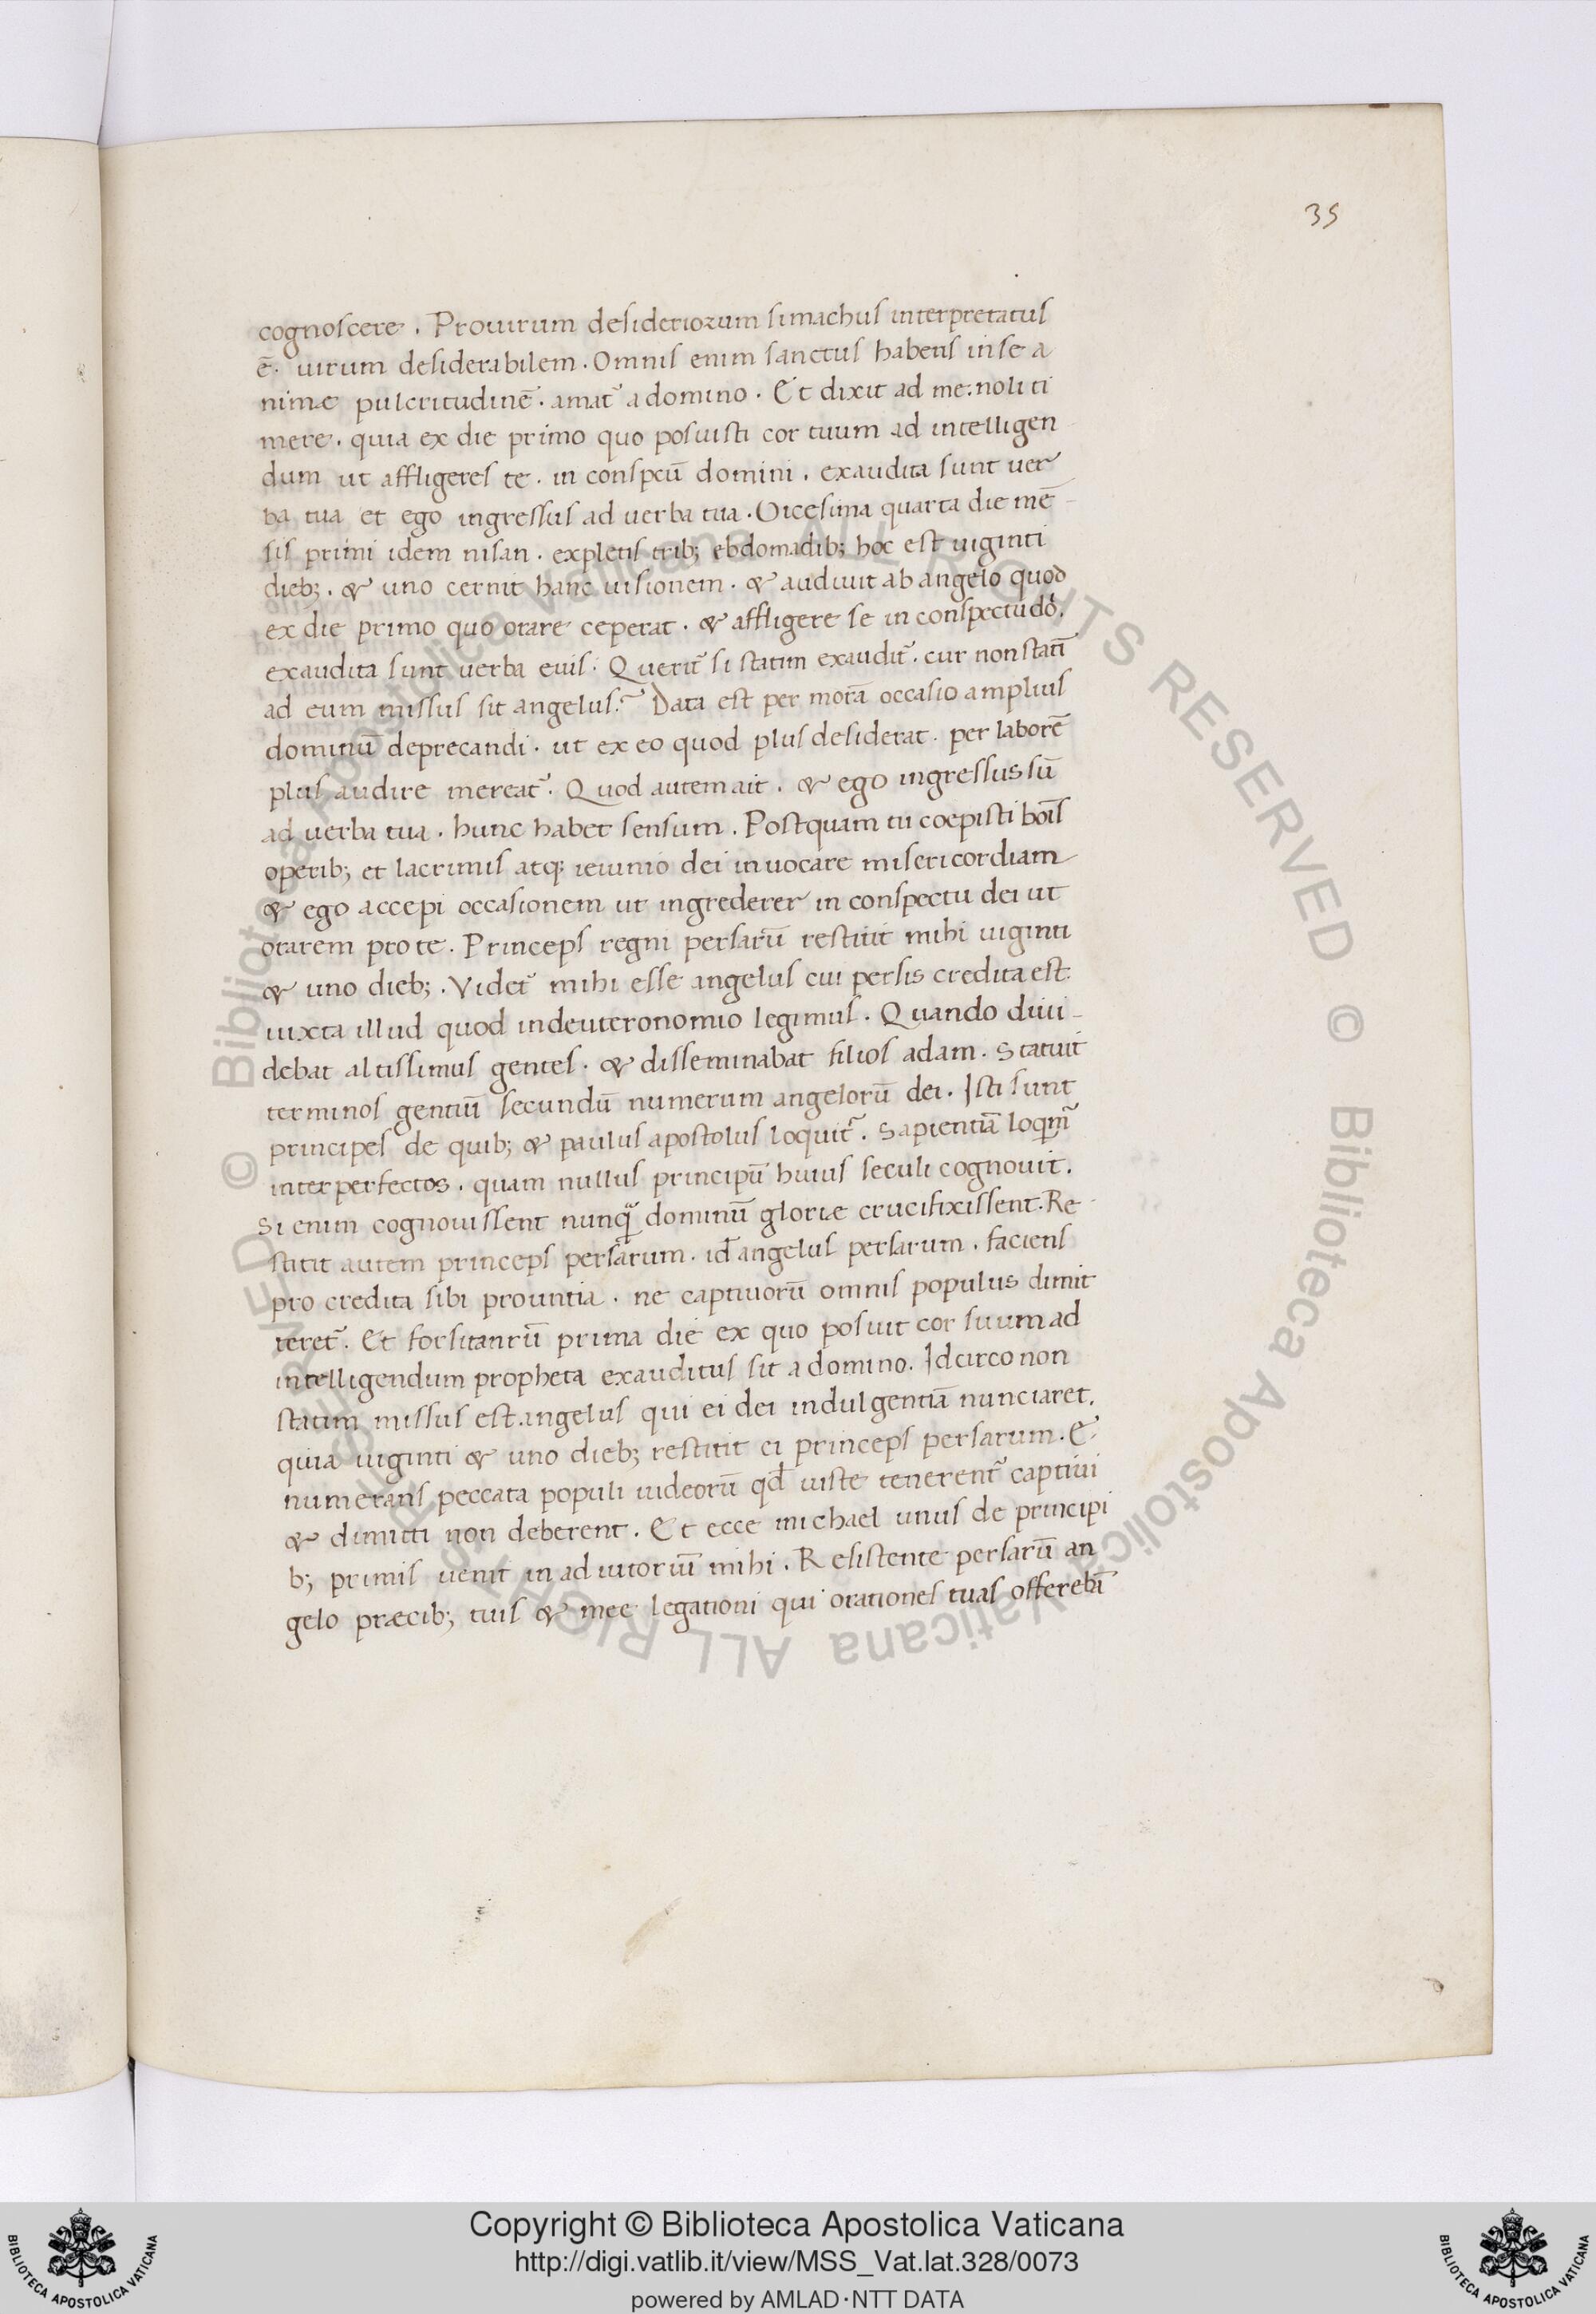 35
cognoscere. Pro uirum desideriorum simachus interpretatus
ē. uirum desiderabilem. Omnis enim sanctus habens in se a
nimæ pulcritudinē. amat᷑ a domino. Et dixit ad me: noli ti
mere. quia ex die primo quo posuisti cor tuum ad intelligen
dum ut affligeres te. in conspcū domini. exaudita sunt uer
ba tua et ego ingressus ad uerba tua. Vicesima quarta die mē
sis primi idem nisan. expletis trib; ebdomadib; hoc est uiginti
dieb;. & uno cernit hanc uisionem. & audiuit ab angelo quod
ex die primo quo orare ceperat. & affligere se in conspectu dō.
exaudita sunt uerba euis. Querit᷑ si statim exaudit᷑. cur non statī
ad eum missus sit angelus? Data est per morā occasio amplius
dominū deprecandi. ut ex eo quod plus desiderat. per laborē
plus audire mereat᷑. Quod autem ait. & ego ingressus sū
ad uerba tua. hunc habet sensum. Postquam tu coepisti boīs
operib; et lacrimis atq; ieiunio dei inuocare misericordiam
& ego accepi occasionem ut ingrederer in conspectu dei ut
orarem pro te. Princeps regni persarū restitit mihi uiginti
& uno dieb;. Videt᷑ mihi esse angelus cui persis credita est
iuxta illud quod in deuteronomio legimus. Quando diui-
debat altissimus gentes. & disseminabat filios adam. Statuit
terminos gentiū secundū numerum angelorū dei. Isti sunt
principes de quib; & paulus apostolus loquit᷑. Sapientiā loqm᷑
inter perfectos. quam nullus principū huius seculi cognouit.
Si enim cognouissent nunqᷓ dominū gloriæ crucifixissent. Re-
stitit autem princeps persarum. id̄ angelus persarum. faciens
pro credita sibi prouintia. ne captiuorū omnis populus dimit
teret᷑. Et forsitan rū prima die ex quo posuit cor suum ad
intelligendum propheta exauditus sit a domino. Idcirco non
statim missus est angelus qui ei dei indulgentiā nunciaret.
quia uiginti & uno dieb; restitit ei princeps persarum. E
numerans peccata populi iudeorū qd̄ iuste tenerent᷑ captiui
& dimitti non deberent. Et ecce michael unus de principi
b; primis uenit in adiutoriū mihi. Resistente persarū an
gelo præcib; tuis & mee legationi qui orationes tuas offerebā
Copyright © Biblioteca Apostolica Vaticana
http://digi.vatlib.it/view/MSS_Vat.lat.328/0073
powered by AMLAD·NTT DATA
BIBLIOTECA APOSTOLICA VATICANA
BIBLIOTECA APOSTOLICA VATICANA
© Biblioteca Apostolica Vaticana ALL RIGHTS RESERVED © Biblioteca Apostolica Vaticana ALL RIGHTS RESERVED